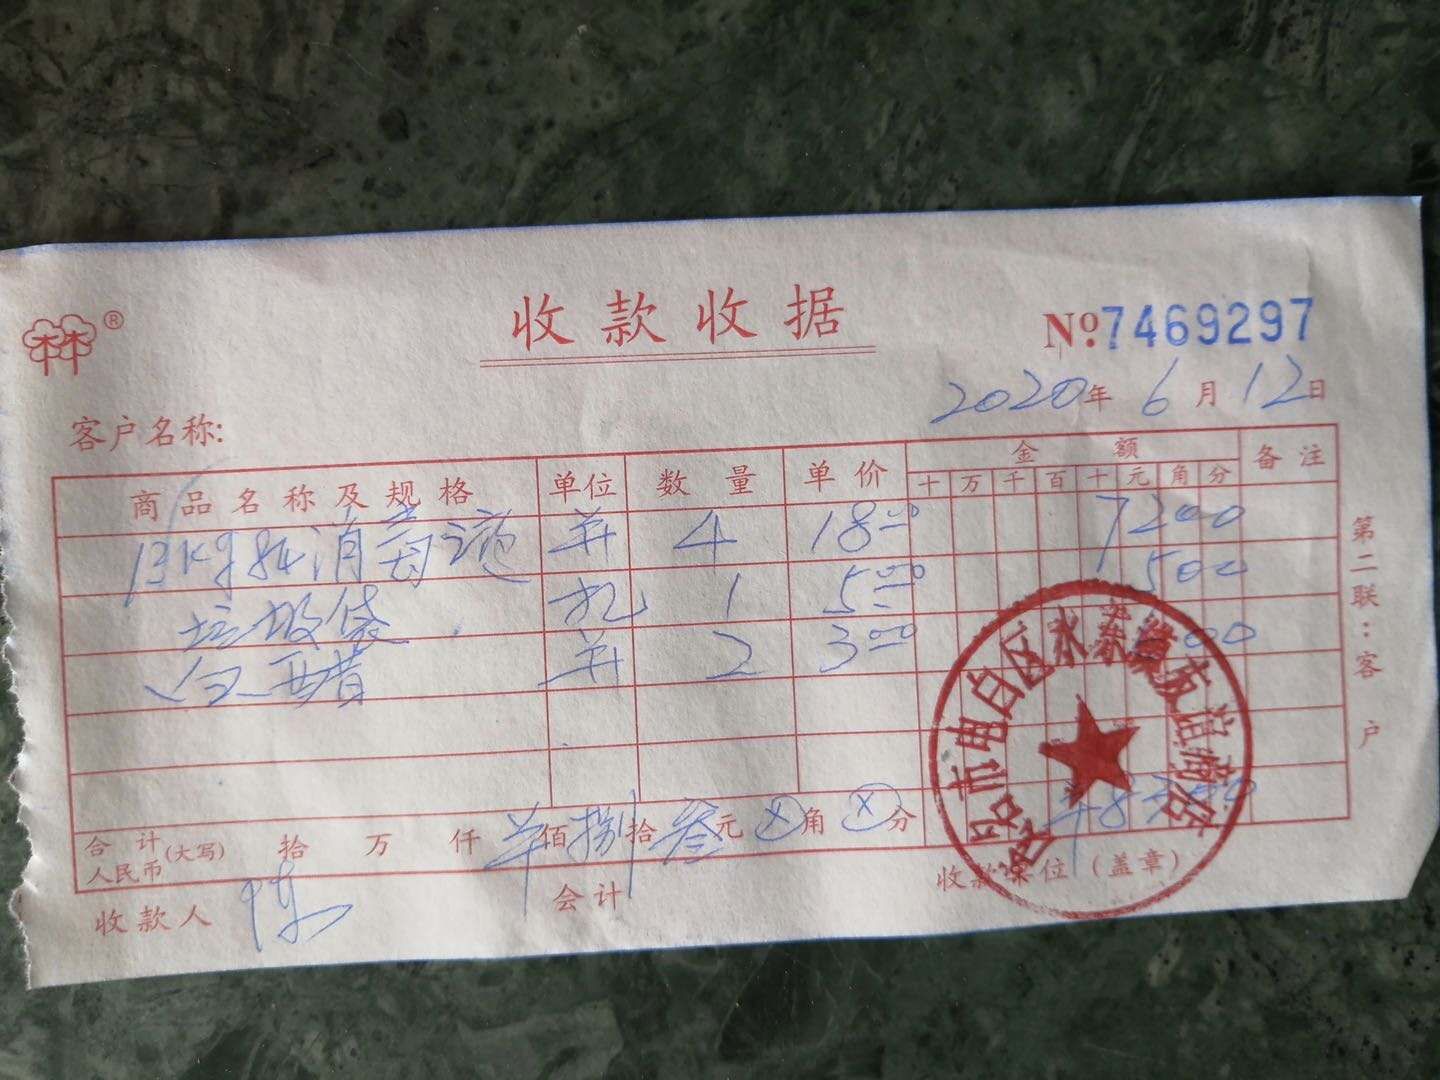 林林®
收款收据
No 7469297
2020年6月12日
客户名称:
商品名称及规格 单位 数量 单价 金额 备注
十 万 千 百 十 元 角 分
消毒液 4 18.00 7200
垃圾袋 扎 1 5.00 500
白醋 2 3.00 600
合计人民币(大写) 拾 万 仟 佰 捌 拾 叁 元 ⊗ 角 ⊗ 分 8300
收款人 陈 会计 收款单位(盖章)
第二联:客户
茂名市电白区水东镇友谊商店